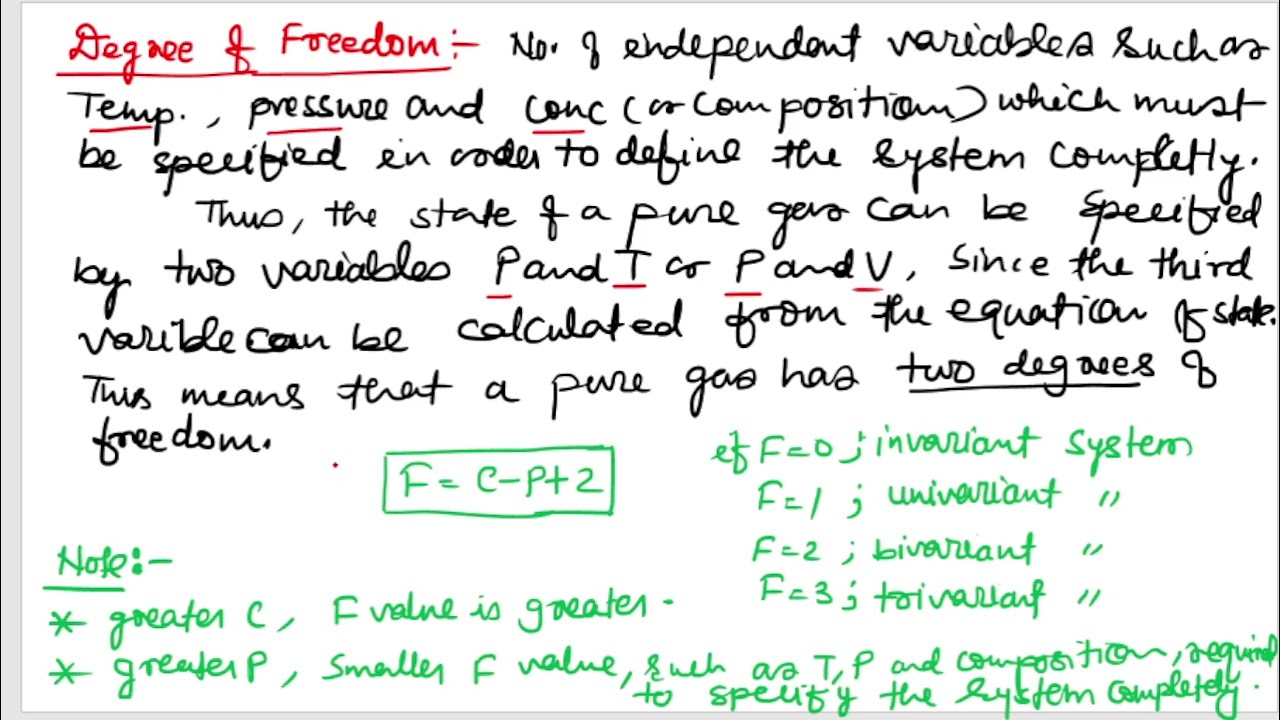 Degree of Freedom:- No. of endependent variables such as
Temp., pressure and conc (or composition) which must
be specified en order to define the system completly.
Thus, the state of a pure gas can be specified
by two variables P and T or P and V, since the third
varible can be calculated from the equation of state.
This means that a pure gas has two degrees of
freedom.
F = C-P+2
ef F=0 ; invariant system
F=1 ; univariant "
F=2 ; bivariant "
F=3 ; trivariant "
Note:-
* greater C, F value is greater.
* greater P, smaller F value, such as T, P and composition, required
to specify the system completely.